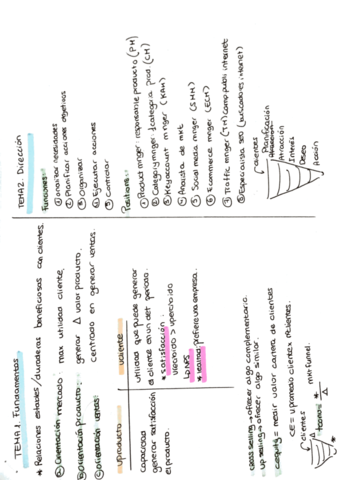 TEMA 1. Fundamentos
* Relaciones estables/duraderas beneficiosas con clientes.
Ⓐ Orientación mercado: max utilidad cliente.
Ⓑ Orientación producto: generar Δ valor producto.
Ⓒ Orientación ventas: centrado en generar ventas.
U producto
capacidad
generar satisfacción
el producto.
U cliente
utilidad que puede generar
el cliente en un det periodo.
* satisfacción:
v recibido > v percibido
* lealtad, prefiere una empresa.
cross selling → ofrecer algo complementario.
up selling → ofrecer algo similar.
= medir valor cartera de clientes
clientes
TEMA 2. Dirección
Funciones:
① analizar necesidades
② Planificar acciones objetivos
③ Organizar
④ Ejecutar acciones
⑤ Controlar
Positions:
① Product mnger: responsable producto (PM)
② Category mnger: 1 categoría prod (CM)
③ Key account mnger (KAM)
④ Analista de mkt
⑤ Social media mnger (SMM)
⑥ Ecommerce mnger (ECM)
⑦ Traffic mnger (TM) camp public internet
⑧ Especialista SEO (buscadores internet)
clientes
Planificación
Atracción
Interés
Deseo
Acción